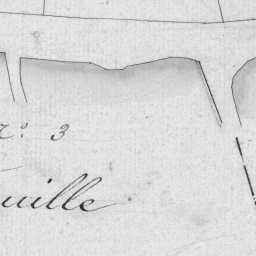 N.º 3
uille